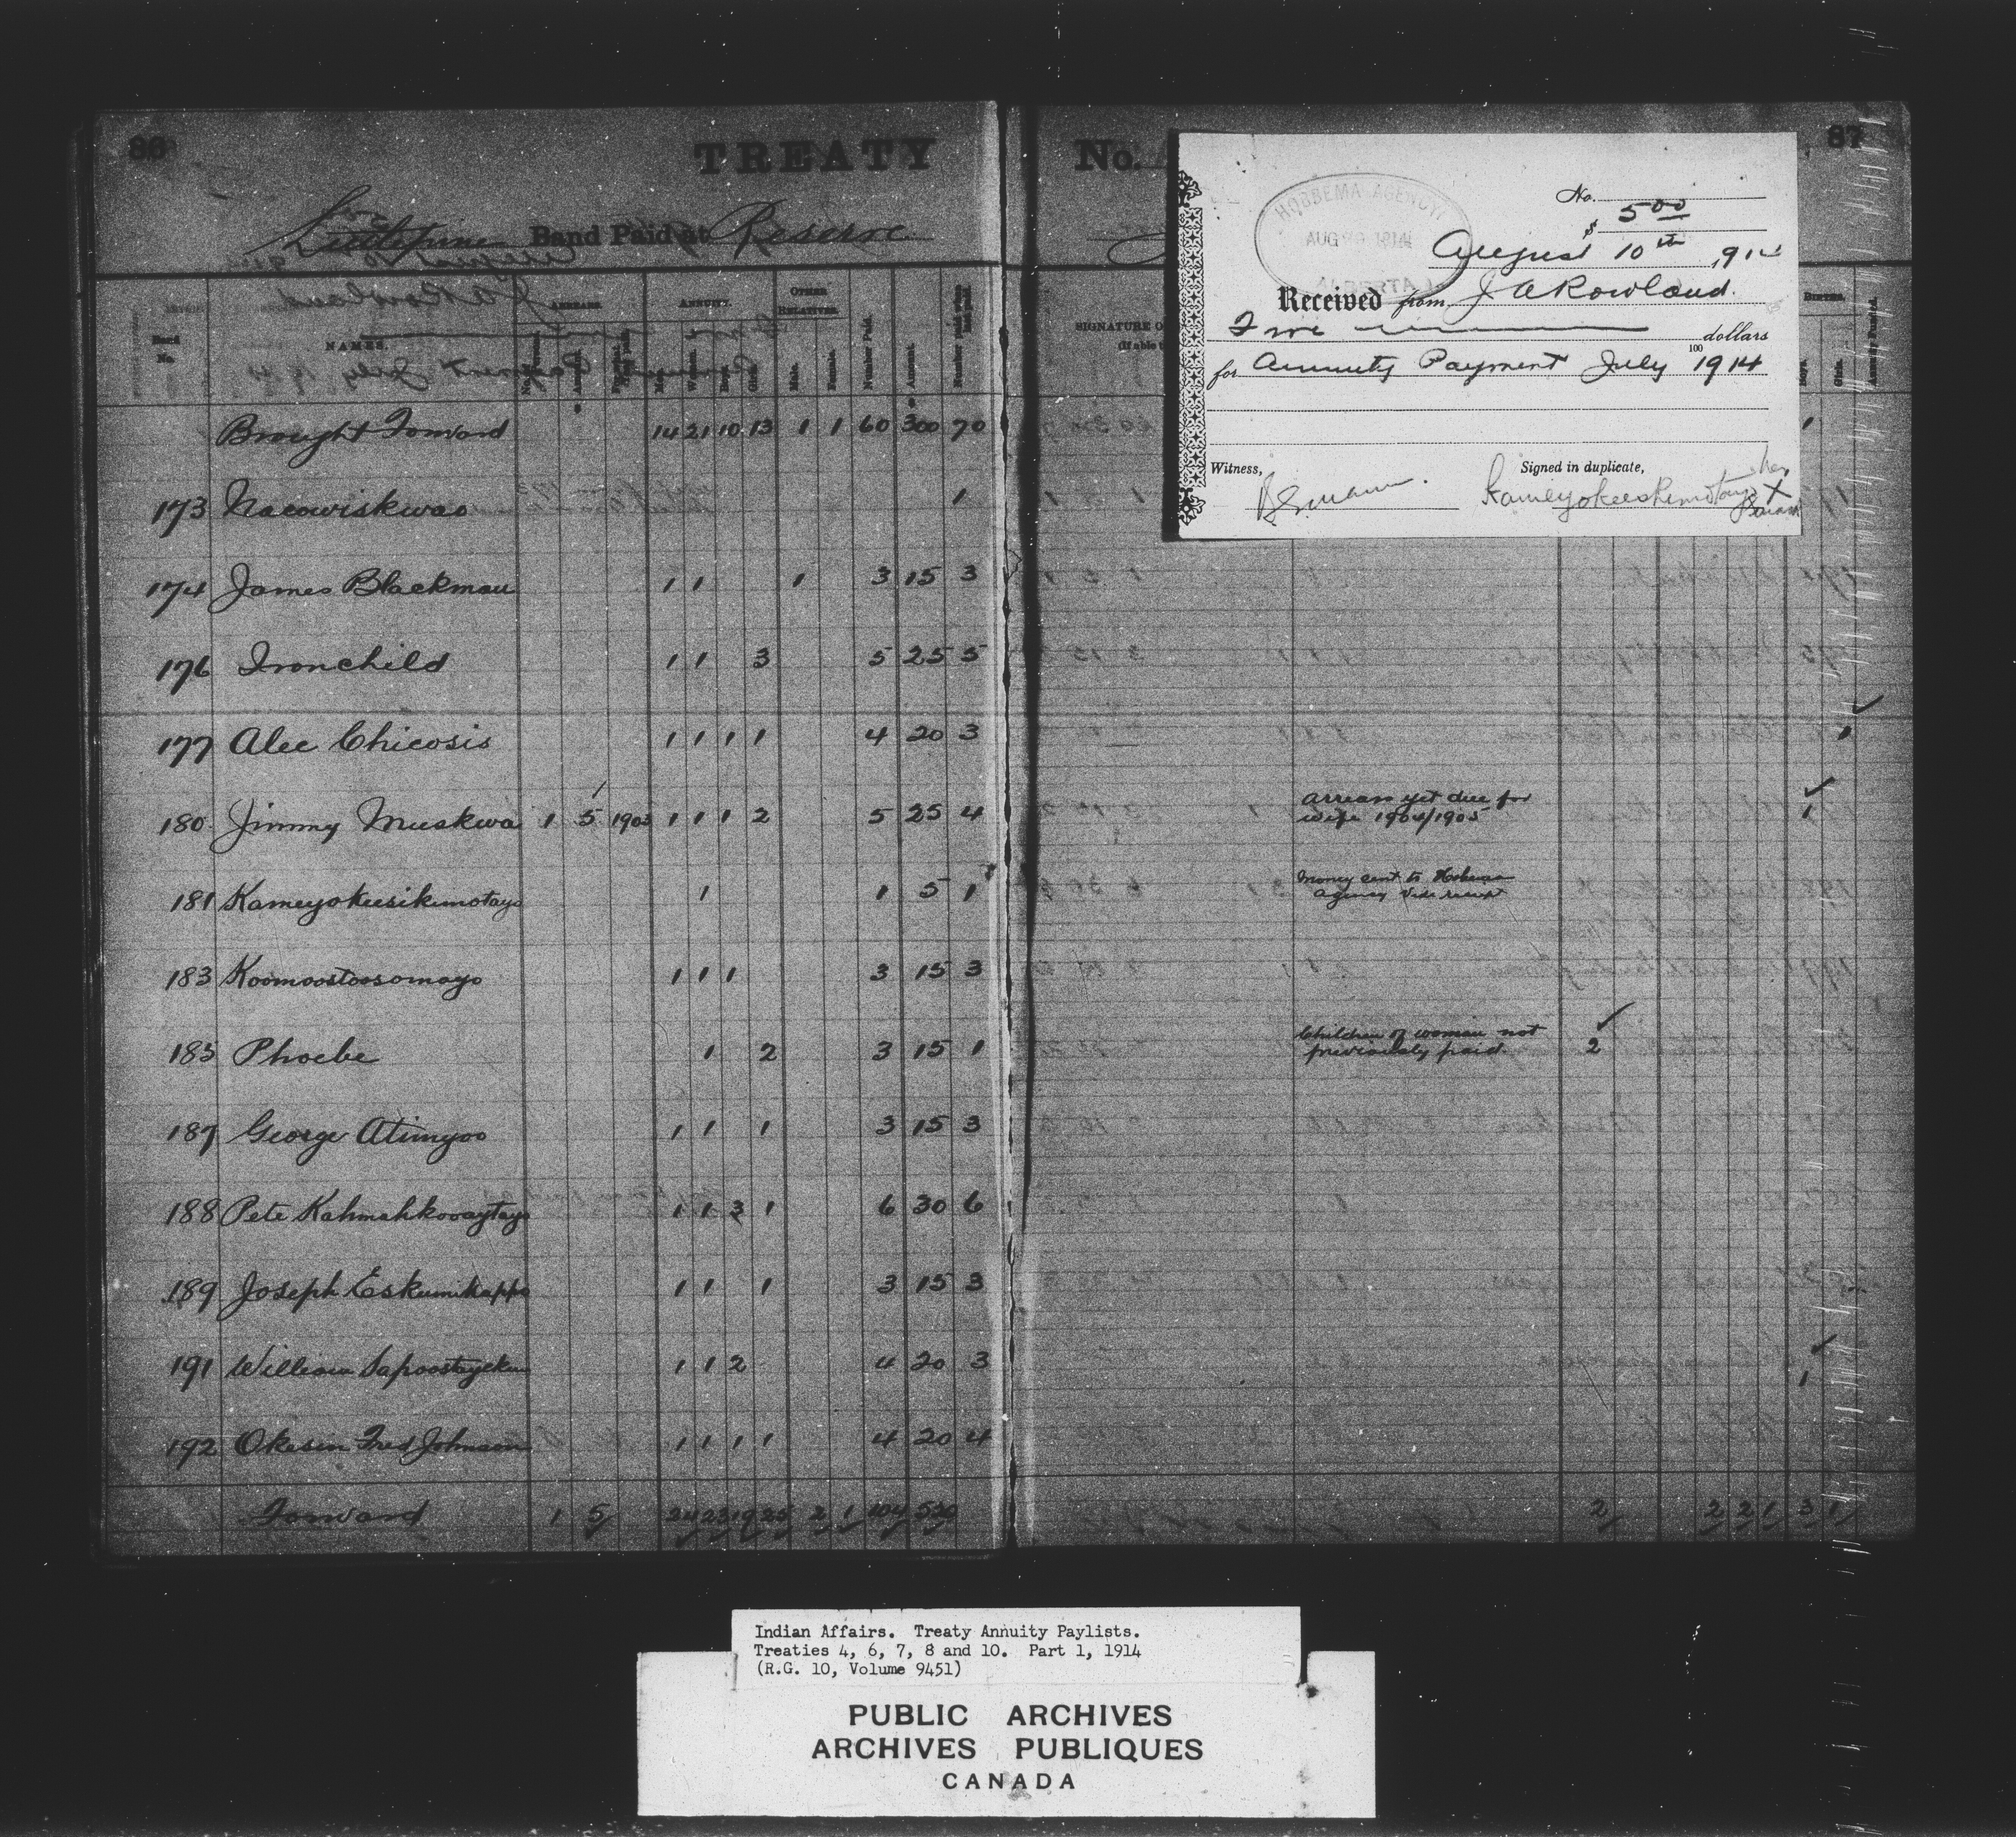 86
TREATY
No.
87
Band Paid at Reserve
HOBBEMA AGENCY
AUG 1914
ALBERTA
No.
$ 5 00
August 10th, 191
Received from J A Rowland.
Five dollars
100
for Annuity Payment July 1914
Witness,
Signed in duplicate,
her
X
Band No.
NAMES.
ARREARS.
ANNUITY.
OTHER RELATIVES.
Men.
Women.
Boys.
Girls.
Male.
Female.
Number Paid.
Amount.
SIGNATURE O
(If able t
BIRTHS.
Boys.
Girls.
Brought Forward 14 21 10 13 1 1 60 300 70 1
173 Nacowiskwao 1
174 James Blackman 1 1 1 3 15 3
176 Ironchild 1 1 3 5 25 5
177 Alec Chicosis 1 1 1 1 4 20 3 1
180 Jimmy Muskwa 1 5 1903 1 1 1 2 5 25 4 Arrears yet due for 1
wife 1904/1905
181 Kameyokeesikimotayo 1 1 5 1 Money sent to Hobbema
Agency Vide receipt
183 Koomoostoosomayo 1 1 1 3 15 3
185 Phoebe 1 2 3 15 1 Children of woman not 2
previously paid.
187 George Atimyoo 1 1 1 3 15 3
188 Pete Kahmahkowaytayo 1 1 3 1 6 30 6
189 Joseph Eskumikappo 1 1 1 3 15 3
191 William Sapoostayekun 1 1 2 4 20 3 1
192 Okesen Fred Johnson 1 1 1 1 4 20 4
Forward 1 5 24 23 19 25 2 1 104 520 2 2 2 1 3 1
Indian Affairs. Treaty Annuity Paylists.
Treaties 4, 6, 7, 8 and 10. Part 1, 1914
(R.G. 10, Volume 9451)
PUBLIC ARCHIVES
ARCHIVES PUBLIQUES
CANADA